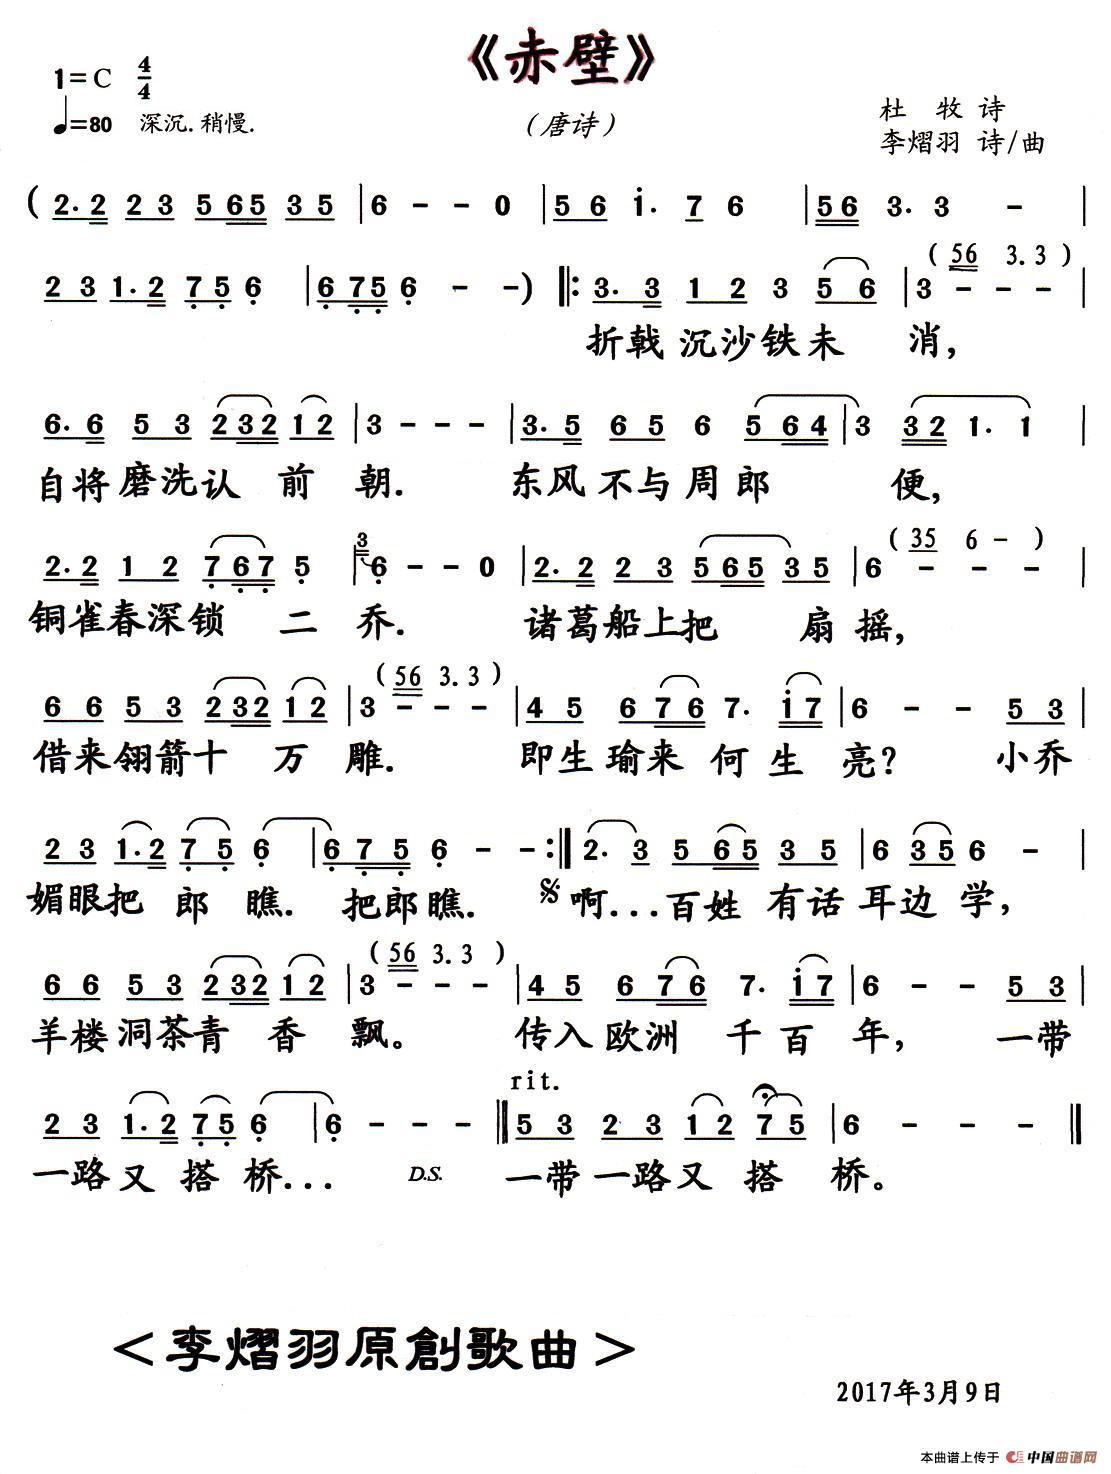 《赤壁》
1=C 4/4
♩=80 深沉.稍慢.
（唐诗）
杜 牧 诗
李熠羽 诗/曲
( 2· 2 2 3 5 6 5 3 5 | 6 - - 0 | 5 6 i· 7 6 | 5 6 3· 3 - |
2 3 1· 2 7 5 6 | 6 7 5 6 - - ) ‖: 3· 3 1 2 3 5 6 | 3 - - - |
( 56 3.3 )
折戟沉沙铁未 消,
6· 6 5 3 2 3 2 1 2 | 3 - - - | 3· 5 6 5 6 5 6 4 | 3 3 2 1· 1 |
自将磨洗认 前 朝. 东风不与周郎 便,
2· 2 1 2 7 6 7 5 | 3 6 - - 0 | 2· 2 2 3 5 6 5 3 5 | 6 - - - |
( 35 6 - )
铜雀春深锁 二 乔. 诸葛船上把 扇 摇,
6 6 5 3 2 3 2 1 2 | 3 - - - | 4 5 6 7 6 7· i 7 | 6 - - 5 3 |
( 56 3.3 )
借来翎箭十 万 雕. 即生瑜来何生亮? 小乔
2 3 1· 2 7 5 6 | 6 7 5 6 - - :‖ 2· 3 5 6 5 3 5 | 6 3 5 6 - |
媚眼把 郎 瞧. 把郎瞧. 𝄋 啊...百姓有话耳边 学,
6 6 5 3 2 3 2 1 2 | 3 - - - | 4 5 6 7 6 7· i 7 | 6 - - 5 3 |
( 56 3.3 )
羊楼洞茶青 香 飘。 传入欧洲千百年, 一带
rit.
2 3 1· 2 7 5 6 | 6 - - - ‖ 5 3 2 3 1 2 7 5 | 6 - - - ‖
一路又 搭 桥... D.S. 一带一路又 搭 桥。
<李熠羽原創歌曲>
2017年3月9日
本曲谱上传于 中国曲谱网